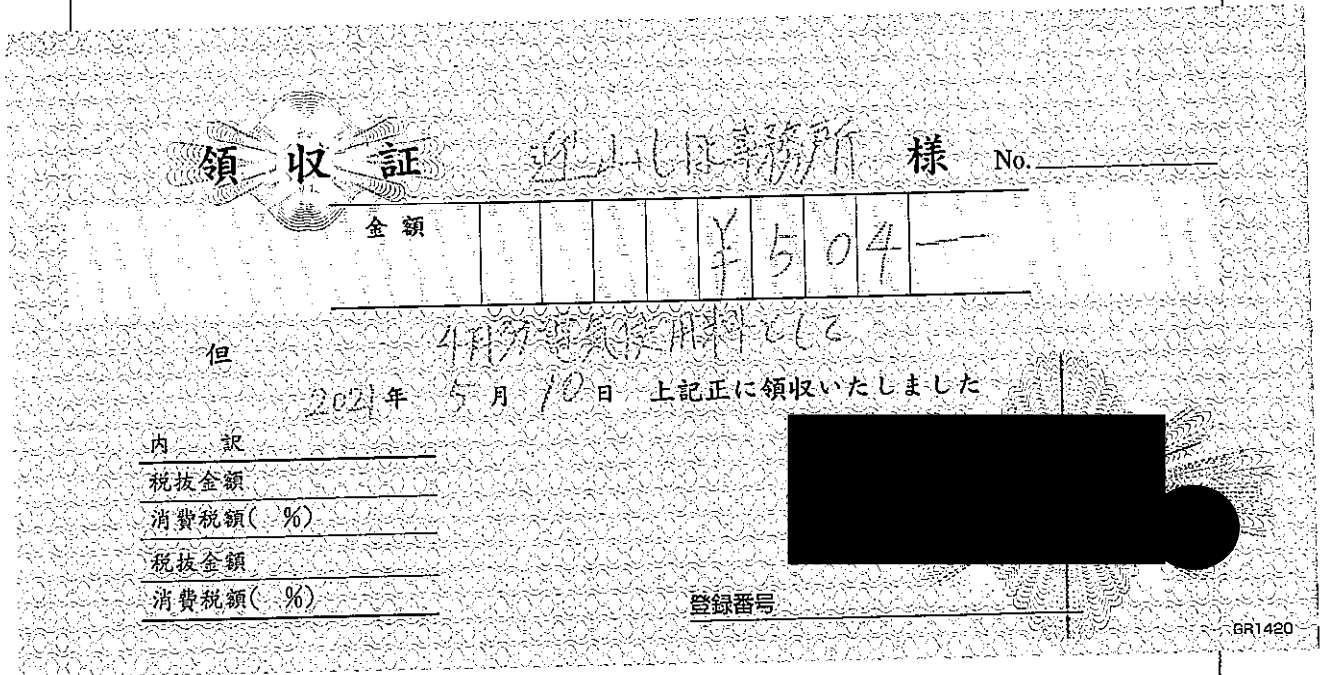 領収証 事務所 様 No.
金額 ¥504―
但 4月分電気使用料として
2021年 5月 10日 上記正に領収いたしました
内訳
税抜金額
消費税額( %)
税抜金額
消費税額( %)
登録番号
GR1420